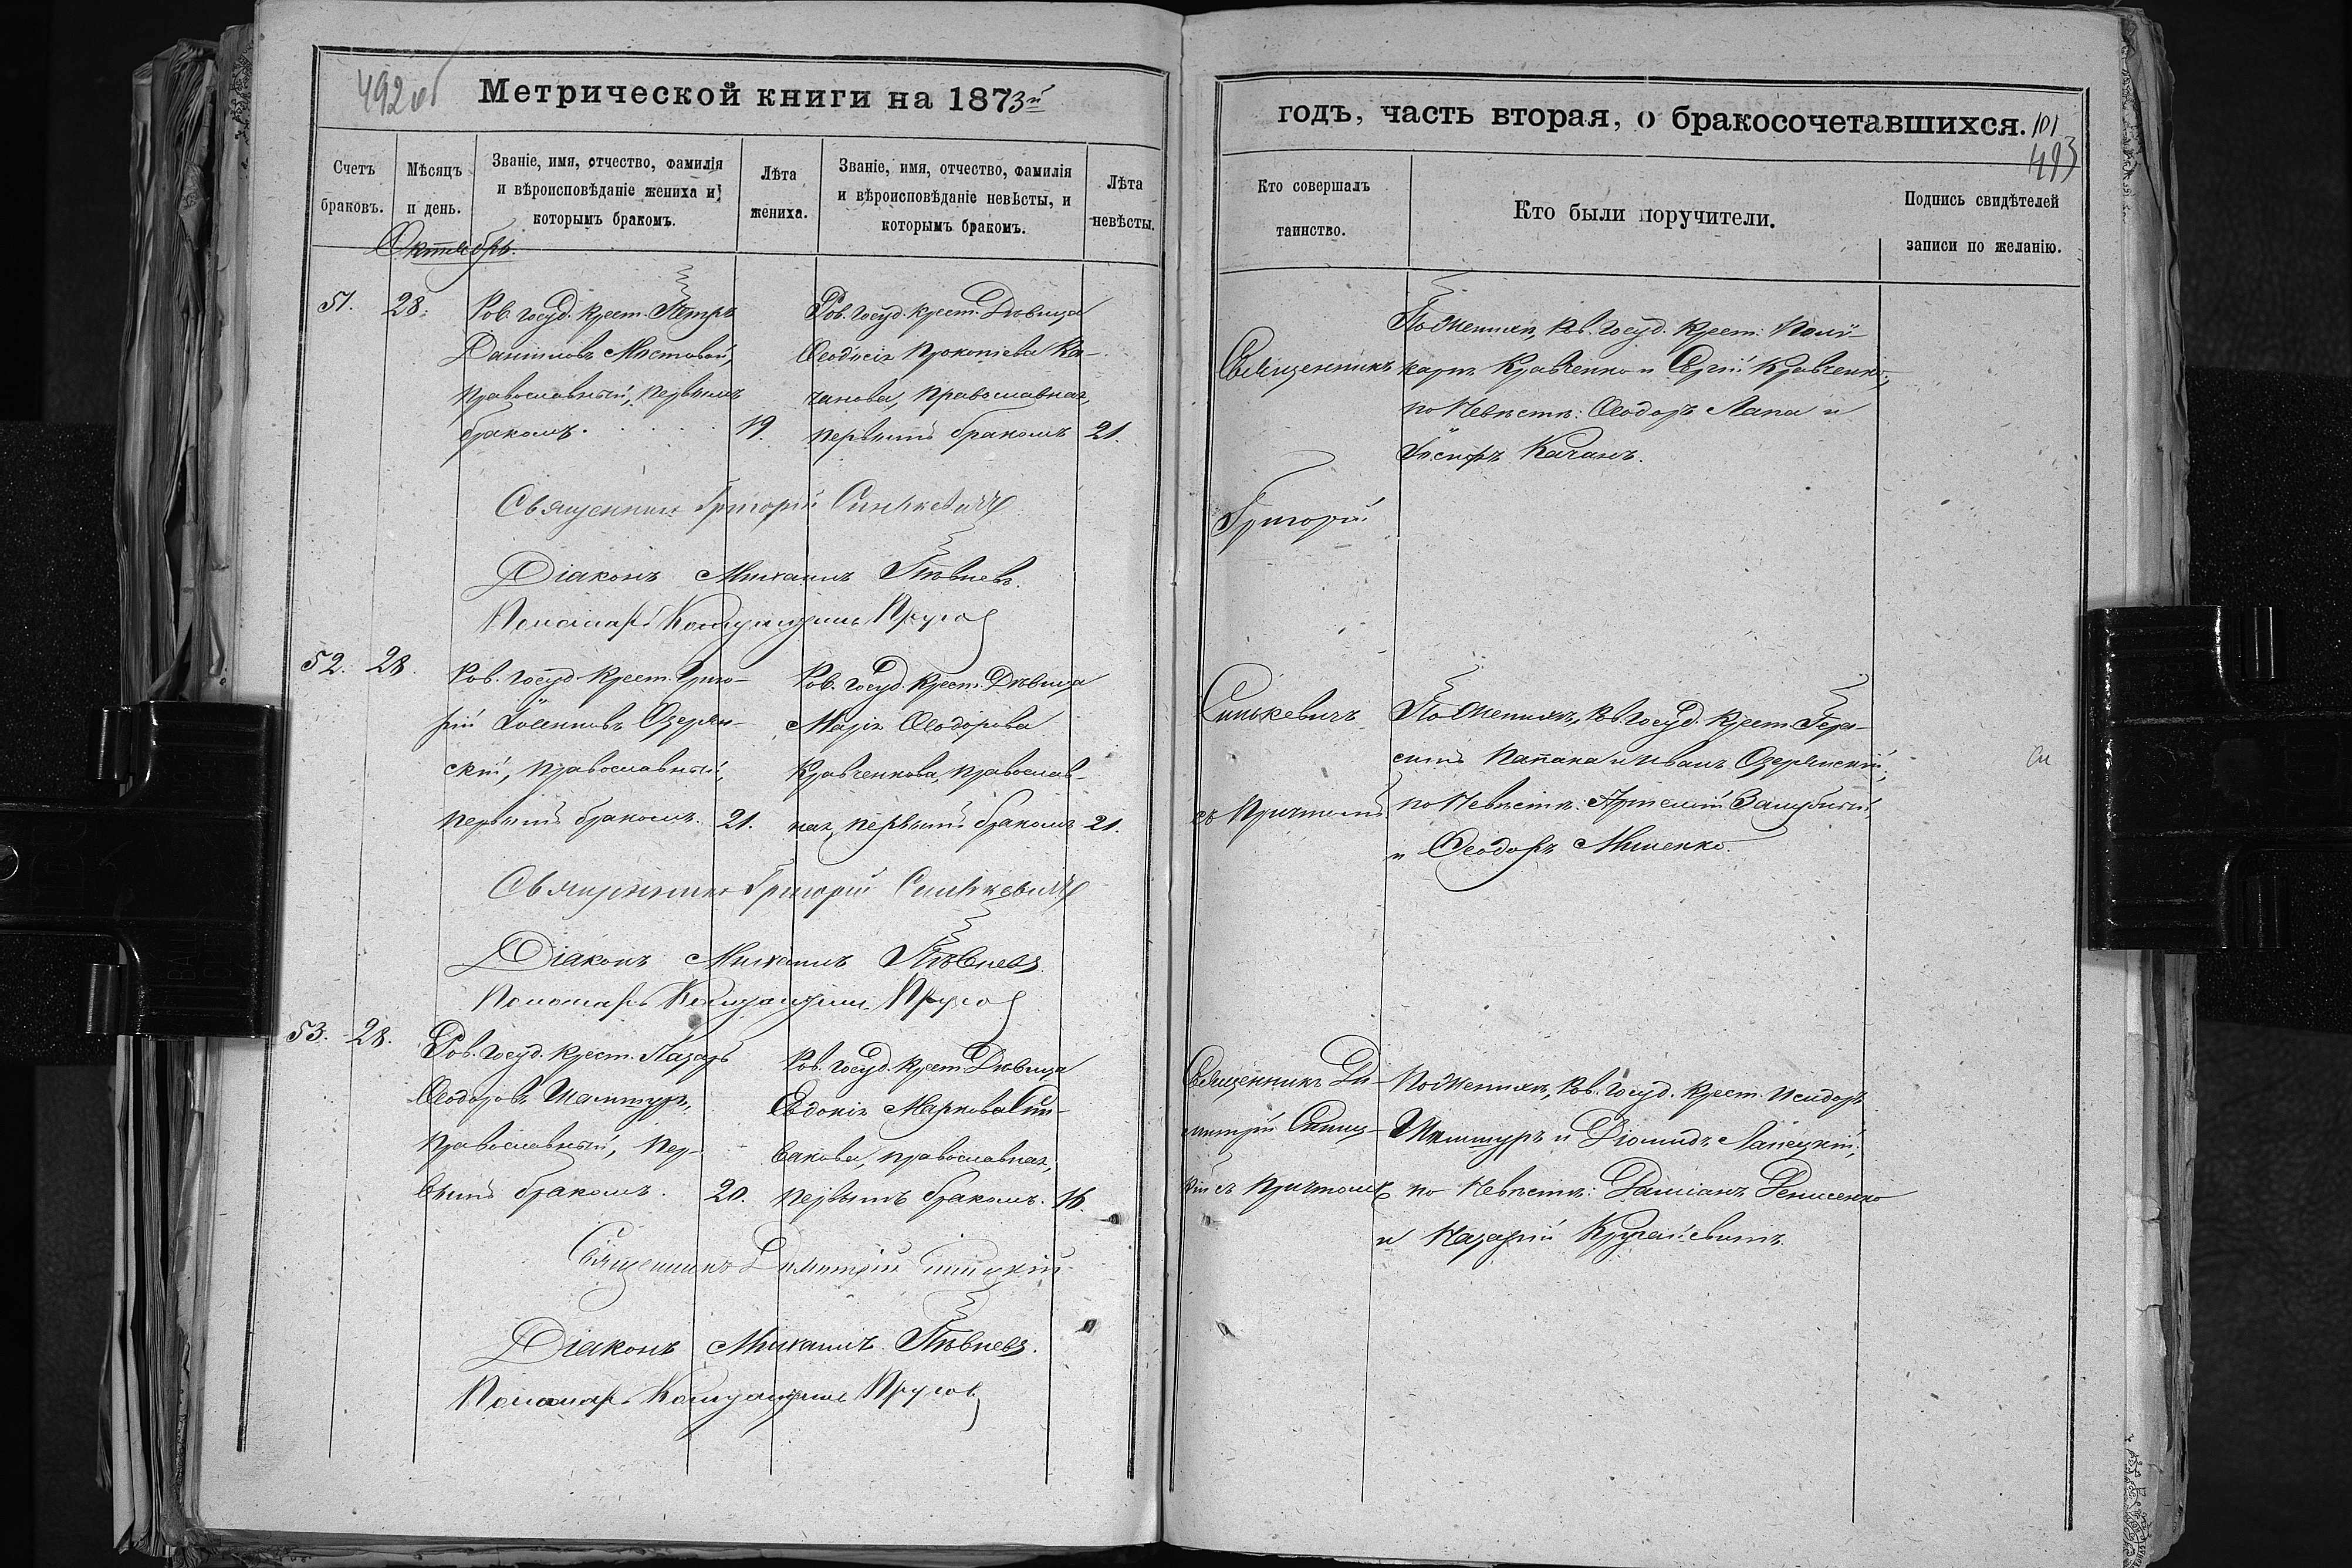 492 об
Метрической книги на 1873й
Счетъ браковъ.
Мѣсяцъ и день.
Званіе, имя, отчество, фамилія и вѣроисповѣданіе жениха и которымъ бракомъ.
Лѣта жениха.
Званіе, имя, отчество, фамилія и вѣроисповѣданіе невѣсты, и которымъ бракомъ.
Лѣта невѣсты.
Октябрь.
51.
28.
Ров. госуд. крест. Петръ
Даніиловъ Мостовой,
православный, первымъ
бракомъ.
19.
Ров. госуд. крест. Дѣвица
Ѳеодосія Прокопіева Ка-
чанова, православная,
первымъ бракомъ
21.
Священникъ Григорій Синькевичъ
Діаконъ Михаилъ Пѣвневъ.
Пономарь
52.
28.
Ров. госуд. крест. Григо-
рій Іоанновъ Озерян-
скій, православный,
первымъ бракомъ.
21.
Ров. госуд. крест. Дѣвица
Марія Ѳеодорова
Кравченкова, православ-
ная, первымъ бракомъ
21.
Священникъ Григорій Синькевичъ
Діаконъ Михаилъ Пѣвневъ.
Пономарь
53.
28.
Ров. госуд. крест. Лазарь
Ѳеодоровъ Шамшуръ,
православный, пер-
вымъ бракомъ.
20.
Ров. госуд. крест. Дѣвица
Евдокія Маркова
вакова, православная,
первымъ бракомъ.
16.
Священникъ Димитрій
Діаконъ Михаилъ Пѣвневъ.
Пономарь
годъ, часть вторая, о бракосочетавшихся.
101
493
Кто совершалъ таинство.
Кто были поручители.
Подпись свидѣтелей записи по желанію.
Священникъ
Григорій
Синькевичъ
съ Причтомъ
По Женихѣ, Ров. госуд. крест. Поли-
карпъ Кравченко и Сергій Кравченко;
по Невѣстѣ: Ѳеодоръ Лапа и
Іосифъ Качанъ.
По Женихѣ, Ров. госуд. крест. Гера-
симъ Папака и Иванъ Озерянскій;
по Невѣстѣ: Артемій
и Ѳеодоръ
Священникъ Ди-
митрій
съ Причтомъ
По Женихѣ, Ров. госуд. крест. Исидоръ
Шамшуръ и Діомидъ
по Невѣстѣ: Даміанъ Денисенко
и Назарій